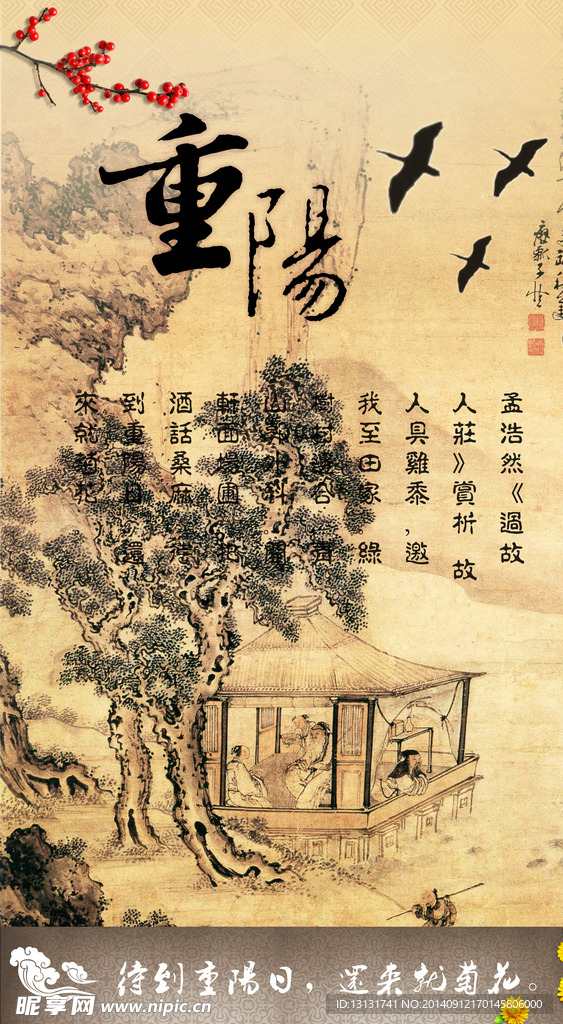 重陽
孟浩然《過故
人莊》賞析 故
人具雞黍，邀
我至田家 綠
樹村邊合
山郭外斜 開
軒面場圃 把
酒話桑麻 待
到重陽日 還
來就菊花
待到重陽日，還来就菊花。
昵享网 www.nipic.cn
ID:13131741 NO:20140912170145806000